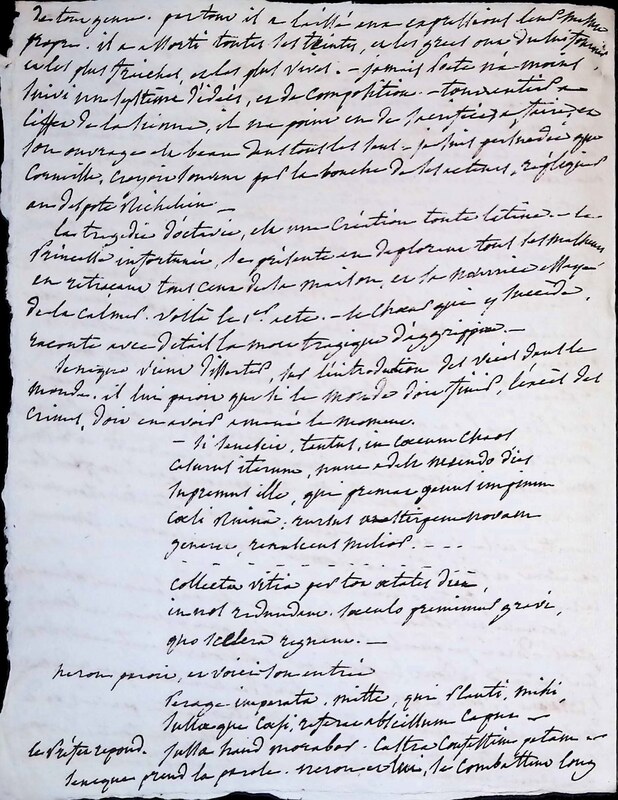 de tout genre. partout il a laissé aux expressions leur
propre. il a assorti toutes les teintes, et les grecs ont
et les plus fraiches, et les plus vives. - jamais poete n'a moins
suivi un systême d'idées, et de composition. - tout entier a
l'effet de la sienne, il ne peut
son ouvrage de beau dans tous les - je suis persuadée que
Corneille, croyant souvent par la bouche de ses acteurs, répliquer
au despote Richelieu -
la tragédie d'octavie, est une création toute latine. - la
Princesse infortunée, se présente en déplorant tous ses malheurs
en retraçant tous ceux de sa maison, et sa nourrice essaye
de la calmer. voilà le 1er acte. - le choeur qui y succède,
raconte avec détail la mort tragique d'aggrippine. -
seneque vient disserter, sur l'introduction des vices dans le
monde. il lui paroit que si le monde doit finir, l'excès des
crimes, doit en avoir amené le moment.
- si senescit, tantus, in coecum chaos
casurus iterum, nunc adest mundo dies
supremus ille, qui premat genus impium
coeli ruinâ; rursus ut stirpem novam
generet, renascens melior. - - -
collecta vitia per tot aetates diù,
in nos redundant. saeculo premimur gravi,
quo scelera regnant. -
neron paroit, et voici son entrée
Perage imperata. mitte, qui Plauti, mihi,
Sullaeque caesi, referat abscissum caput -
le Préfet repond. jussa haud morabor. castra confestim petam -
Seneque prend la parole. neron et lui, se combattent long